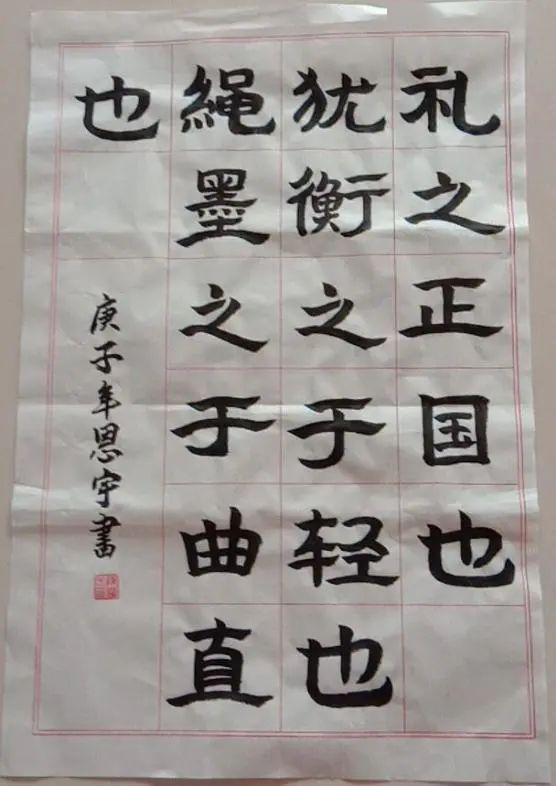 礼之正国也
犹衡之于轻也
繩墨之于曲直
也
庚子年恩宇書